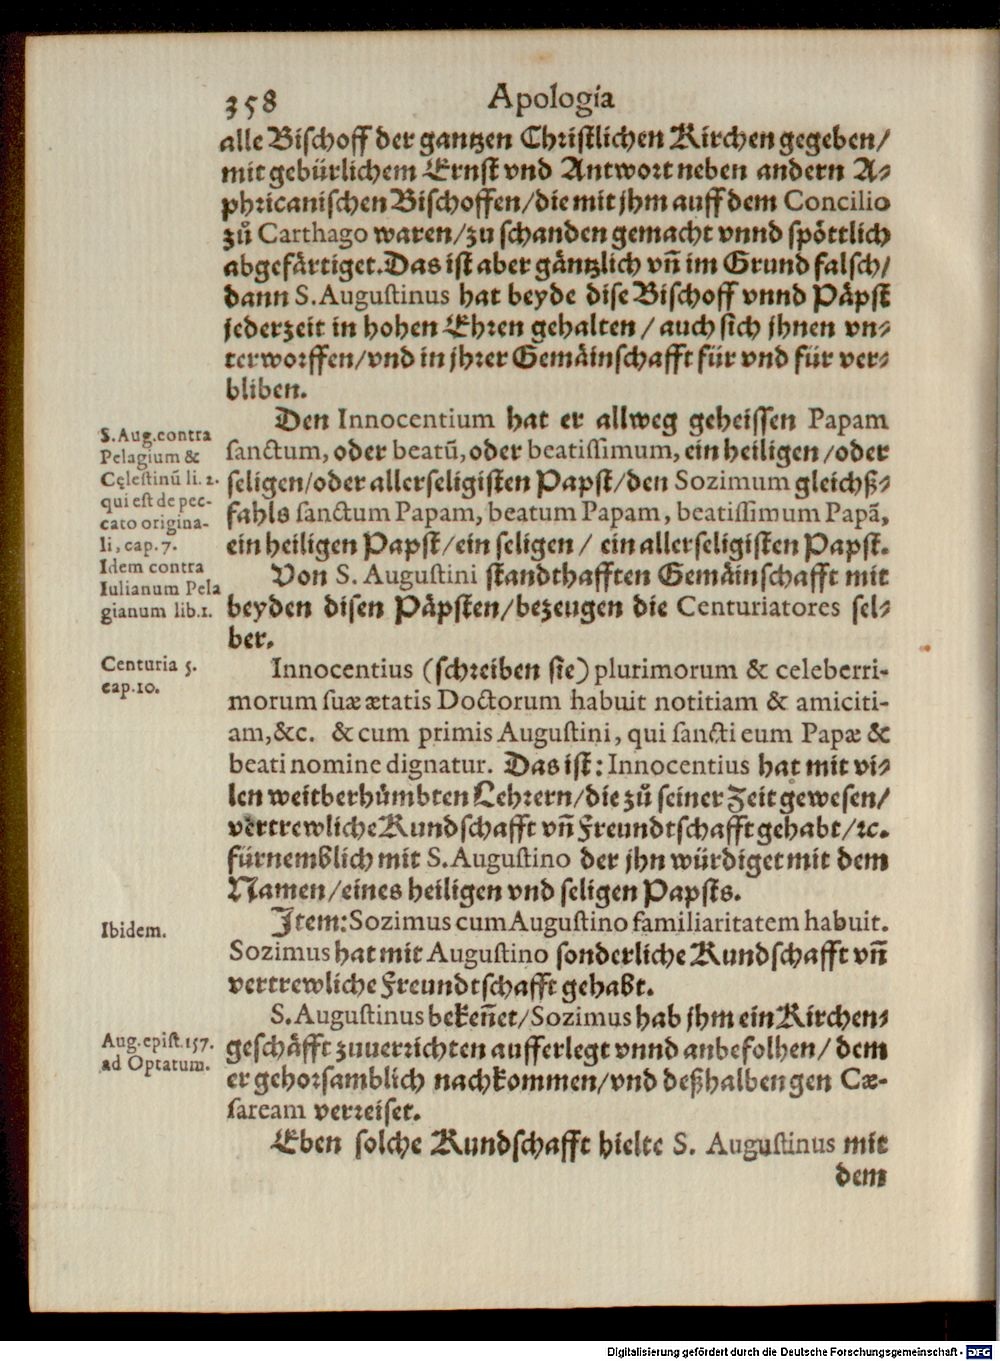 358 Apologia
alle Bischoff der gantzen Christlichen Kirchen gegeben/
mit gebürlichem Ernst vnd Antwort neben andern A⸗
phricanischen Bischoffen/die mit jhm auff dem Concilio
zů Carthago waren/zu schanden gemacht vnnd spöttlich
abgefärtiget.Das ist aber gäntzlich vñ im Grund falsch/
dann S.Augustinus hat beyde dise Bischoff vnnd Päpst
jederzeit in hohen Ehren gehalten / auch sich jhnen vn⸗
terworffen/vnd in jhrer Gemäinschafft für vnd für ver⸗
bliben.
Den Innocentium hat er allweg geheissen Papam
sanctum, oder beatũ, oder beatissimum, ein heiligen/oder
seligen/oder allerseligisten Papst/den Sozimum gleichß⸗
fahls sanctum Papam, beatum Papam, beatissimum Papã,
ein heiligen Papst/ein seligen / ein allerseligisten Papst.
S.Aug.contra
Pelagium &
Cęlestinũ li. 2.
qui est de pec-
cato origina-
li, cap.7.
Idem contra
Iulianum Pela
gianum lib.1.
Von S. Augustini standthafften Gemäinschafft mit
beyden disen Päpsten/bezeugen die Centuriatores sel⸗
ber.
Centuria 5.
cap.10.
Innocentius (schreiben sie) plurimorum & celeberri-
morum suæ ætatis Doctorum habuit notitiam & amiciti-
am,&c. & cum primis Augustini, qui sancti eum Papæ &
beati nomine dignatur. Das ist: Innocentius hat mit vi⸗
len weitberhůmbten Lehrern/die zů seiner Zeit gewesen/
vertrewliche Kundschafft vñ Freundtschafft gehabt/ꝛc.
fürnemblich mit S.Augustino der jhn würdiget mit dem
Namen/eines heiligen vnd seligen Papsts.
Ibidem.
Item: Sozimus cum Augustino familiaritatem habuit.
Sozimus hat mit Augustino sonderliche Kundschafft vñ
vertrewliche Freundtschafft gehabt.
S.Augustinus bekeñet/Sozimus hab jhm ein Kirchen⸗
geschäfft zuuerrichten aufferlegt vnnd anbefolhen/ dem
er gehorsamblich nachkommen/vnd deßhalben gen Cæ-
saream verreiset.
Aug.epist.157.
ad Optatum.
Eben solche Kundschafft hielte S. Augustinus mit
dem
Digitalisierung gefördert durch die Deutsche Forschungsgemeinschaft - DFG